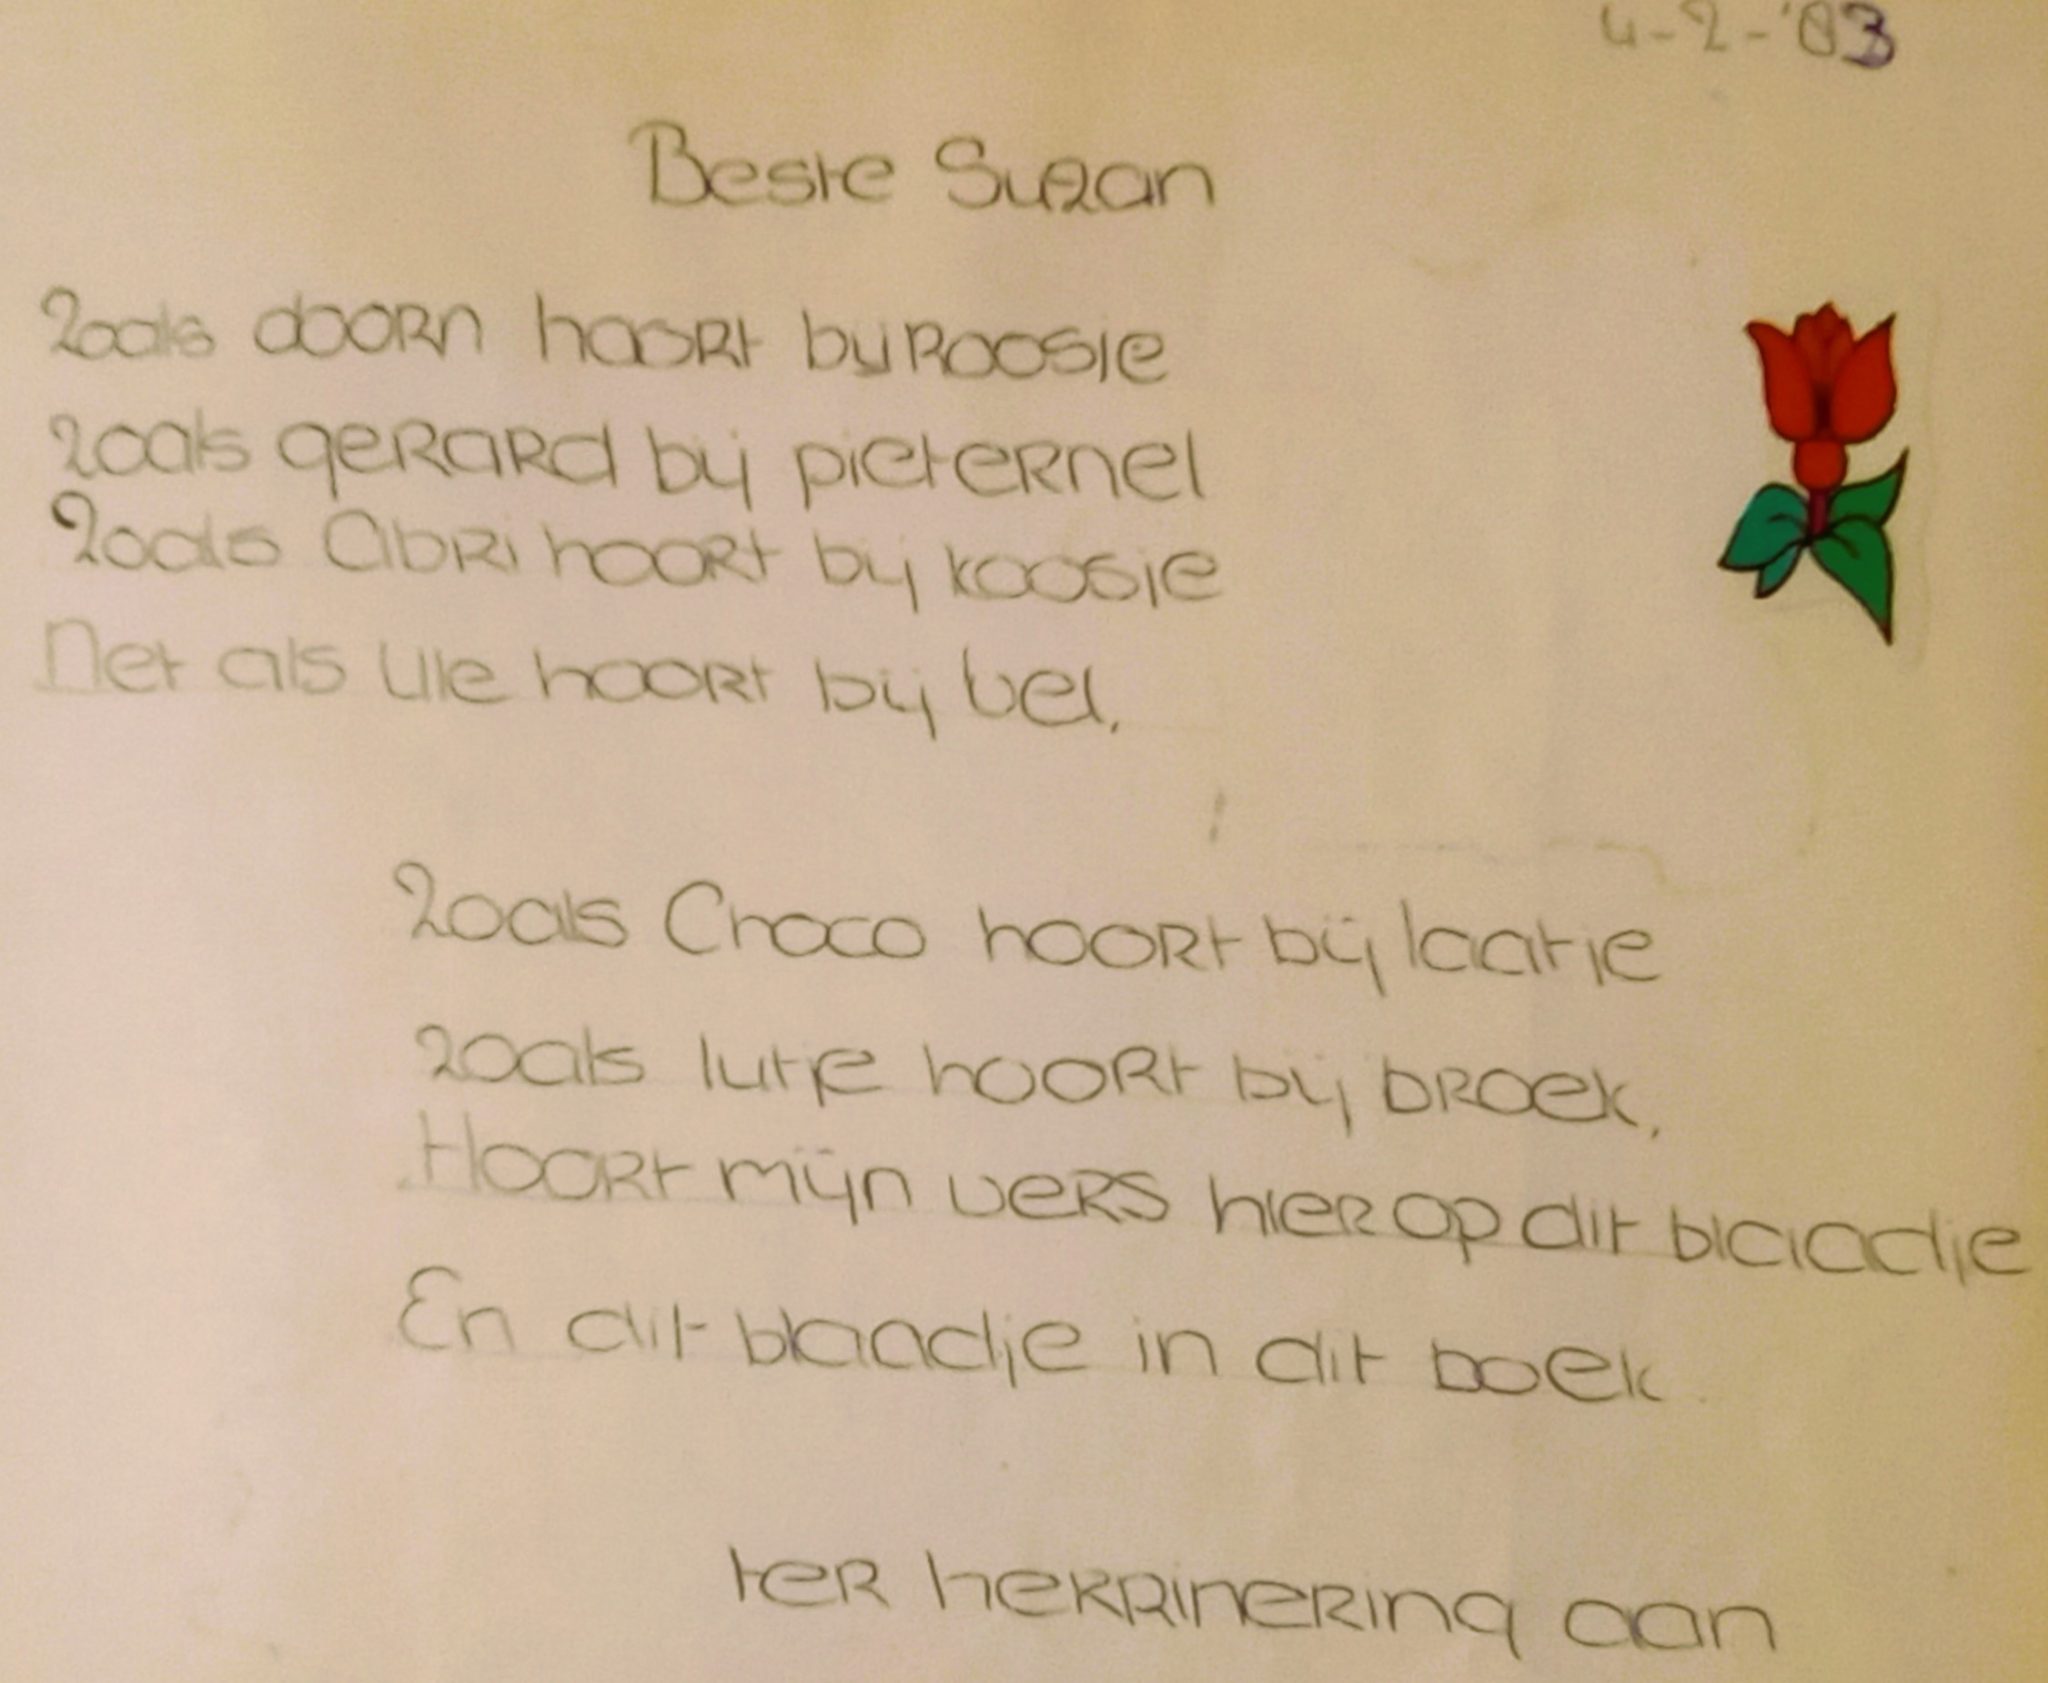 4-2-'83
Beste Suzan
Zoals doorn hoort bij Roosje
zoals gerard bij pieternel
Zoals Abri hoort bij koosje
Net als Ule hoort bij vel,
Zoals Choco hoort bij laatje
zoals lutje hoort bij broek,
Hoort mijn vers hier op dit blaadje
En dit blaadje in dit boek.
ter herrinering aan